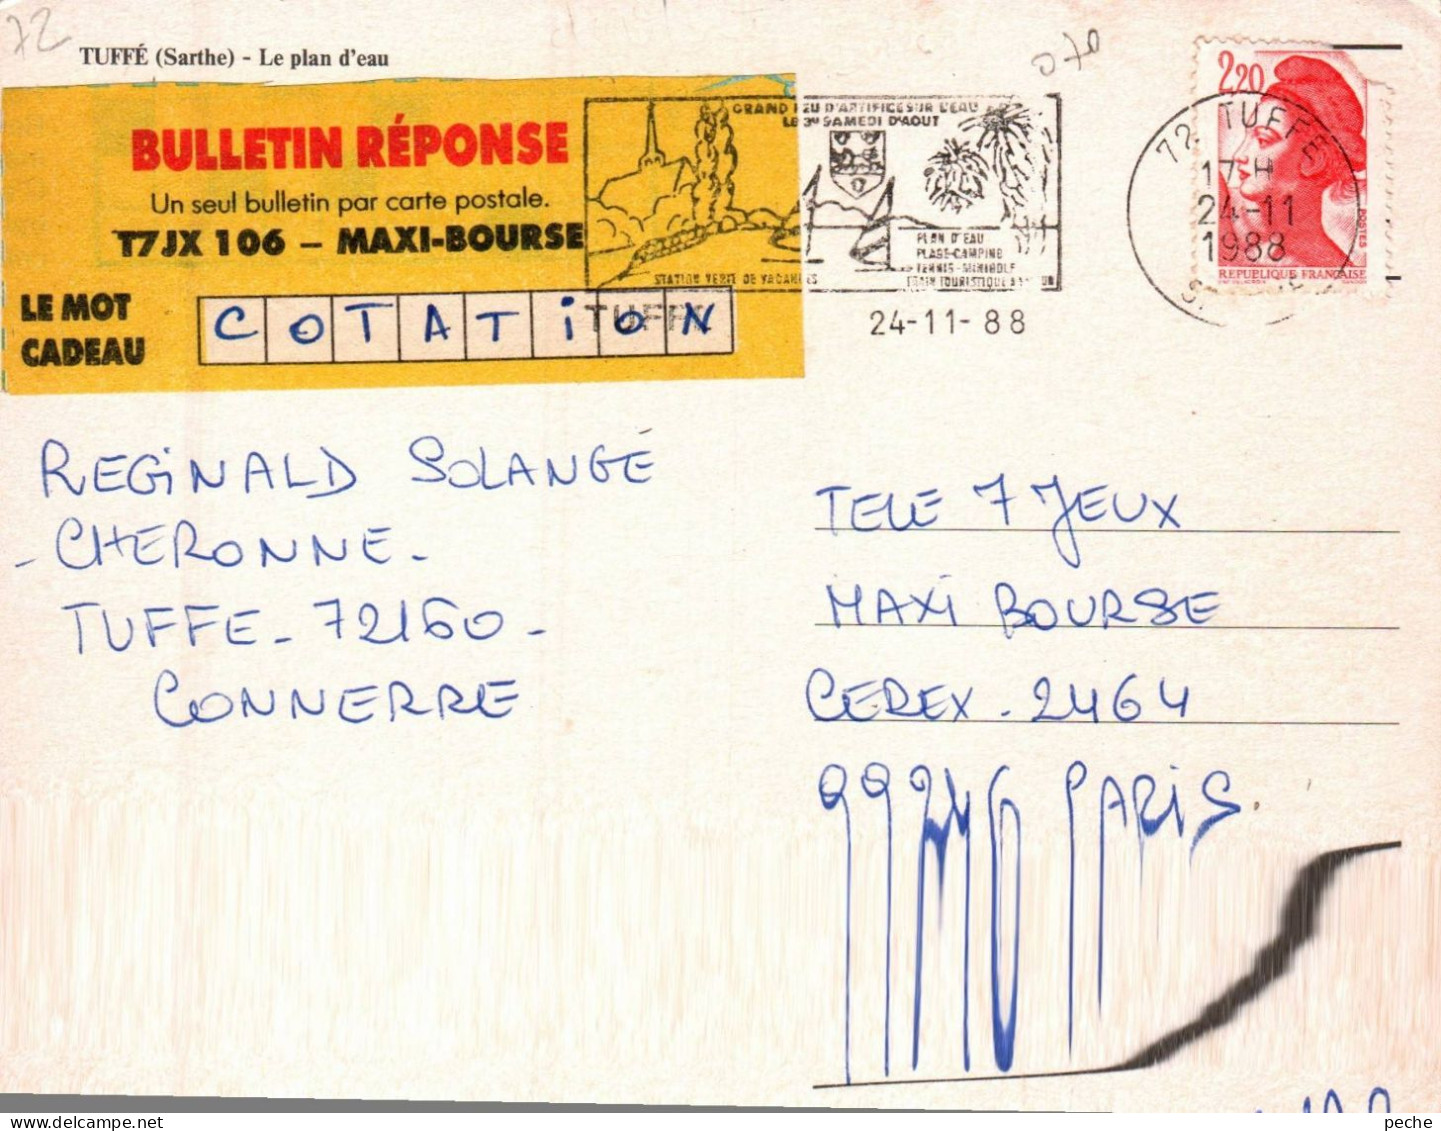 72
TUFFÉ (Sarthe) - Le plan d'eau
BULLETIN RÉPONSE
Un seul bulletin par carte postale.
T7JX 106 – MAXI-BOURSE
LE MOT
CADEAU
COTATION
GRAND FEU D'ARTIFICE SUR L'EAU
LE 3e SAMEDI D'AOUT
PLAN D'EAU
PLAGE-CAMPING
TENNIS-MINIGOLF
STATION VERTE DE VACANCES
TUFFE
24-11-88
070
2,20
POSTES
REPUBLIQUE FRANÇAISE
72 TUFFE
17 H
24-11
1988
REGINALD SOLANGE
- CHERONNE -
TUFFE - 72160 -
CONNERRE
TELE 7 JEUX
MAXI BOURSE
CEREX - 2464
99246 PARIS.
peche